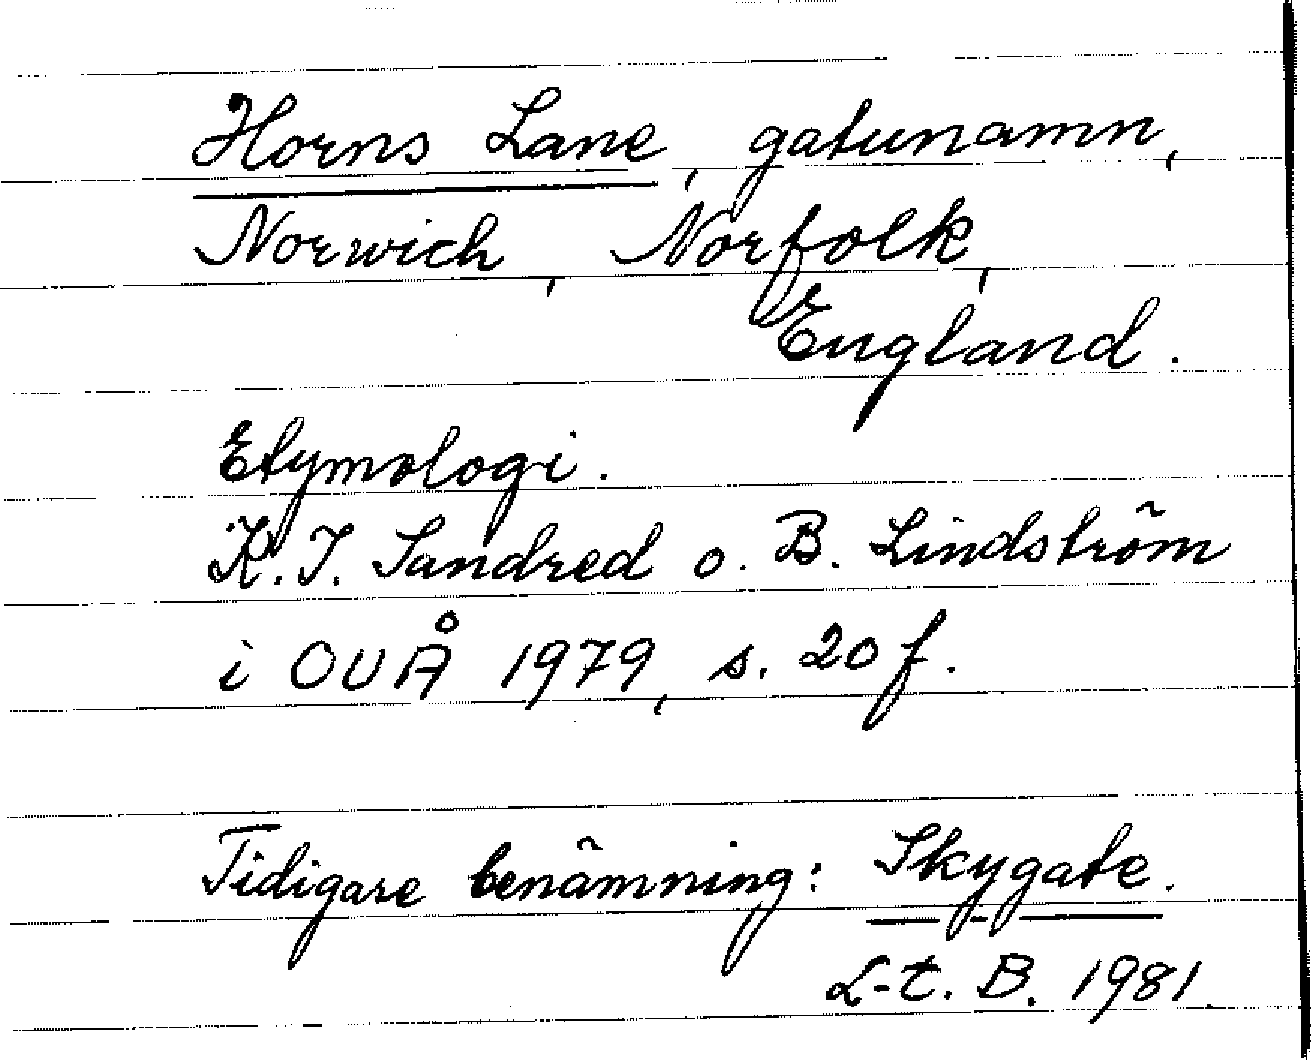 Horns Lane, gatunamn,
Norwich, Norfolk,
England.
Etymologi.
K.I. Sandred o. B. Lindström
i OUÅ 1979, s. 20 f.
Tidigare benämning: Skygate.
L-t. B. 1981.